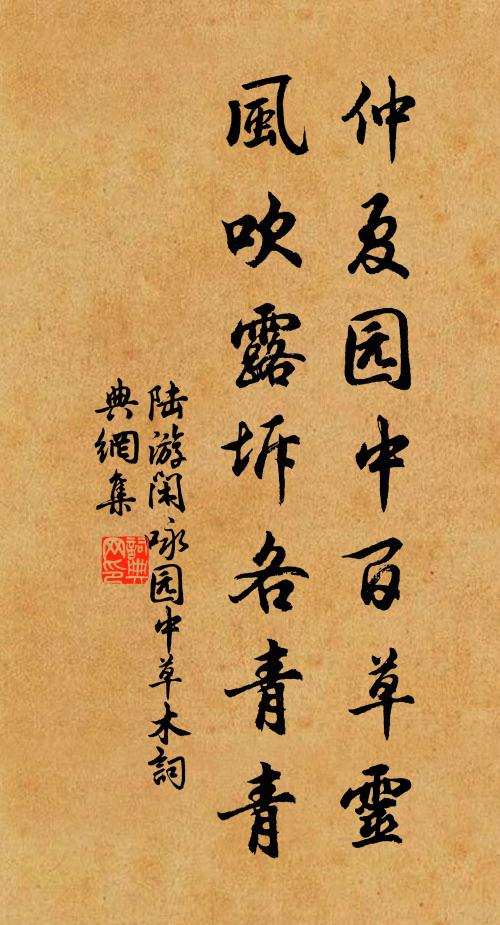 仲夏园中百草靈
風吹露坼各青青
陆游閑咏园中草木詞
典網集
詞典
网印